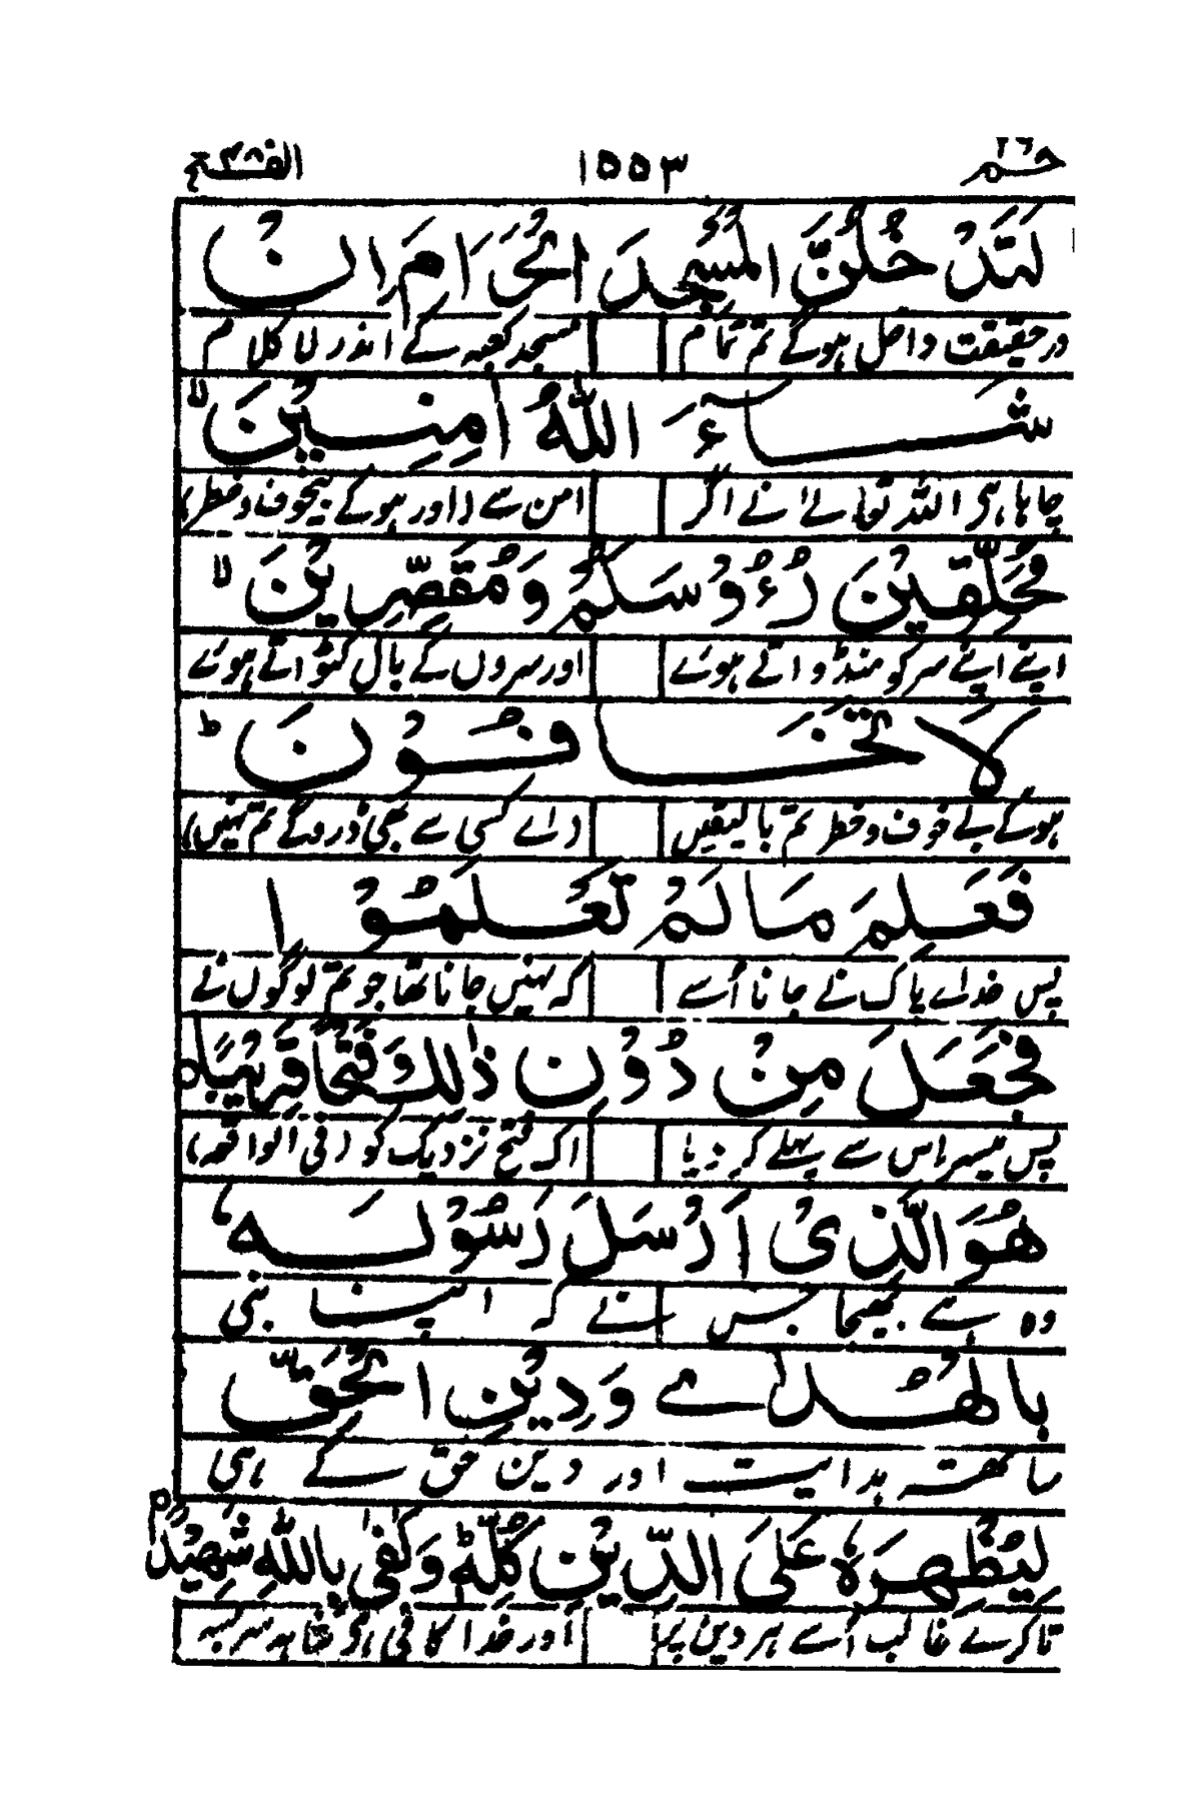 حٰم ٢٦ ١٥٥٣ الفتح ٤٨
لَتَدْخُلُنَّ الْمَسْجِدَ الْحَرَامَ اِنْ
درحقیقت داخل ہوگے تم تمام مسجد کعبہ کے اندر لا کلام
شَآءَ اللّٰهُ اٰمِنِيْنَ ۙ
چاہا ہی اللہ تعالےٰ نے اگر امن سے (اور ہوکے بیخوف و خطر)
مُحَلِّقِيْنَ رُءُوْسَكُمْ وَمُقَصِّرِيْنَ ۙ
اپنے اپنے سر کو منڈواتے ہوئے اور سروں کے بال کٹواتے ہوئے
لَا تَخَافُوْنَ ؕ
ہوکے بے خوف و خطر تم بالیقیں (اے کسی سے بھی ڈروگے تم نہیں)
فَعَلِمَ مَا لَمْ تَعْلَمُوْا
پس خدائے پاک نے جانا اُسے کہ نہیں جانا تھا جو تم لوگوں نے
فَجَعَلَ مِنْ دُوْنِ ذٰلِكَ فَتْحًا قَرِيْبًا
پس میسر اس سے پہلے کر دیا اک فتح نزدیک کو (فی الواقعہ)
هُوَ الَّذِیْۤ اَرْسَلَ رَسُوْلَهٗ
وہ ہے بھیجا جس نے کہ اپنا نبی
بِالْهُدٰے وَدِيْنِ الْحَقِّ
ساتھ ہدایت اور دین حق کے ہی
لِيُظْهِرَهٗ عَلَى الدِّيْنِ كُلِّهٖ ؕ وَكَفٰى بِاللّٰهِ شَهِيْدًا
تا کرے غالب اُسے ہر دین پر اور خدا کافی ہی شاہد سر بسر